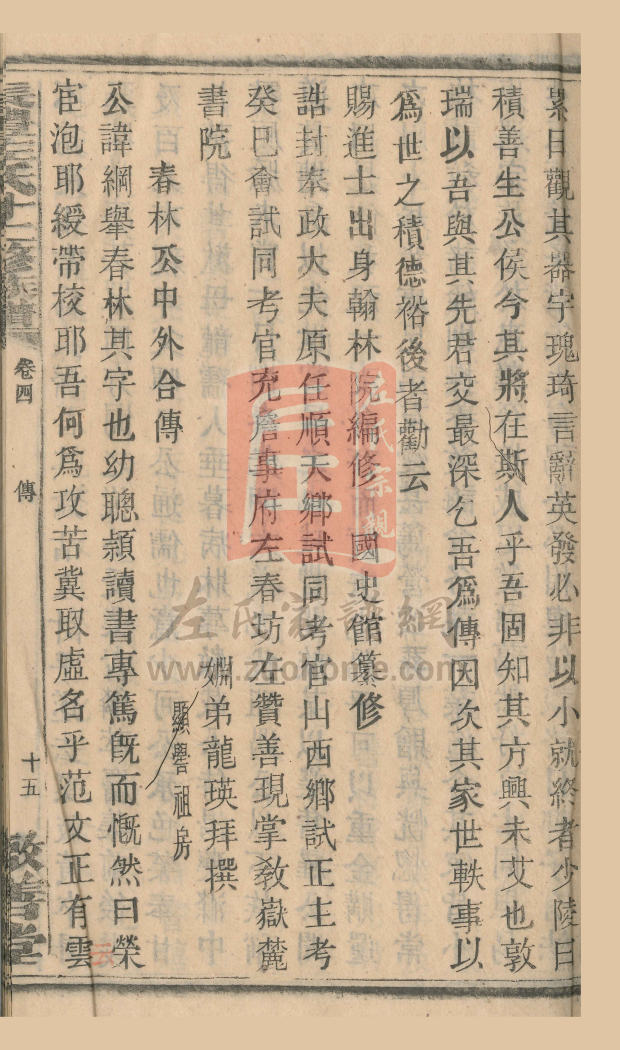 累日觀其器宇瑰琦言辭英發必非以小就終者少陵曰
積善生公侯今其將在斯人乎吾固知其方興未艾也敦
瑞以吾與其先君交最深乞吾爲傳因次其家世軼事以
爲世之積德裕後者勸云
賜進士出身翰林院編修 國史館纂修
誥封奉政大夫原任順天鄉試同考官山西鄉試正主考
癸巳會試同考官充詹事府左春坊左贊善現掌敎嶽麓
書院 姻弟龍瑛拜撰
春林公中外合傳 顯譽祖房
公諱綱舉春林其字也幼聰頴讀書專篤旣而慨然曰榮
宦泡耶綬帶校耶吾何爲攻苦冀取虛名乎范文正有雲
云
左氏十二修族譜
卷四 傳 十五
敦善堂
左氏宗親
左氏家譜網
www.zuohome.com